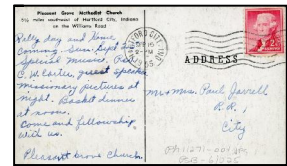 Pleasant Grove Methodist Church
miles southwest of Hartford City, Indiana
on the Williams Road
Rally day and Home
Coming Sun. Sept 25
Special Music. Rev.
C. W. Carter, guest speaker
missionary pictures at
night. Basket dinner
at noon.
Come and fellowship
with us.
Pleasant Grove Church
HARTFORD CITY, IND.
ADDRESS
Mr & Mrs. Paul Jarrell
R.R. 1
City